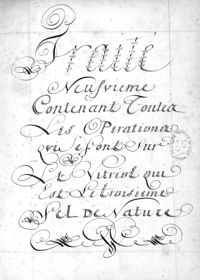 Traité
Neufvieme
Contenant Toutes
Les OPerations
qui se font Sur
Le Vitriol qui
Est Le troisieme
Sel De Nature